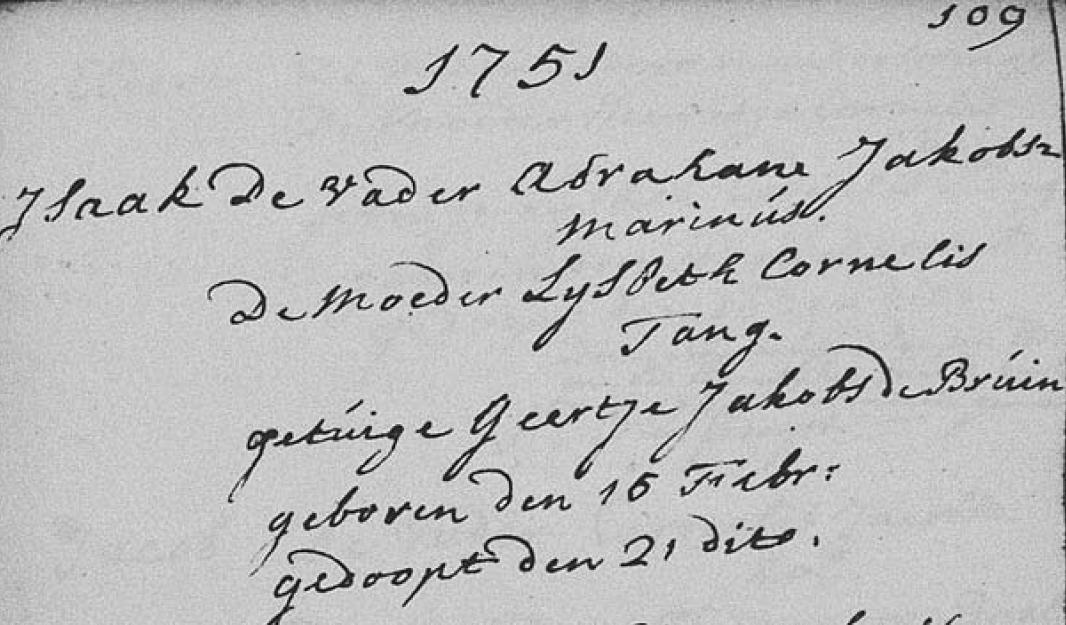 109
1751
Isaak De vader Abraham Jakobsz
marinús.
De Moeder Lysbeth Cornelis
Tang.
getúige Geertje Jakobs de Brúin
geboren den 16 Febr:
gedoopt den 21 dito.